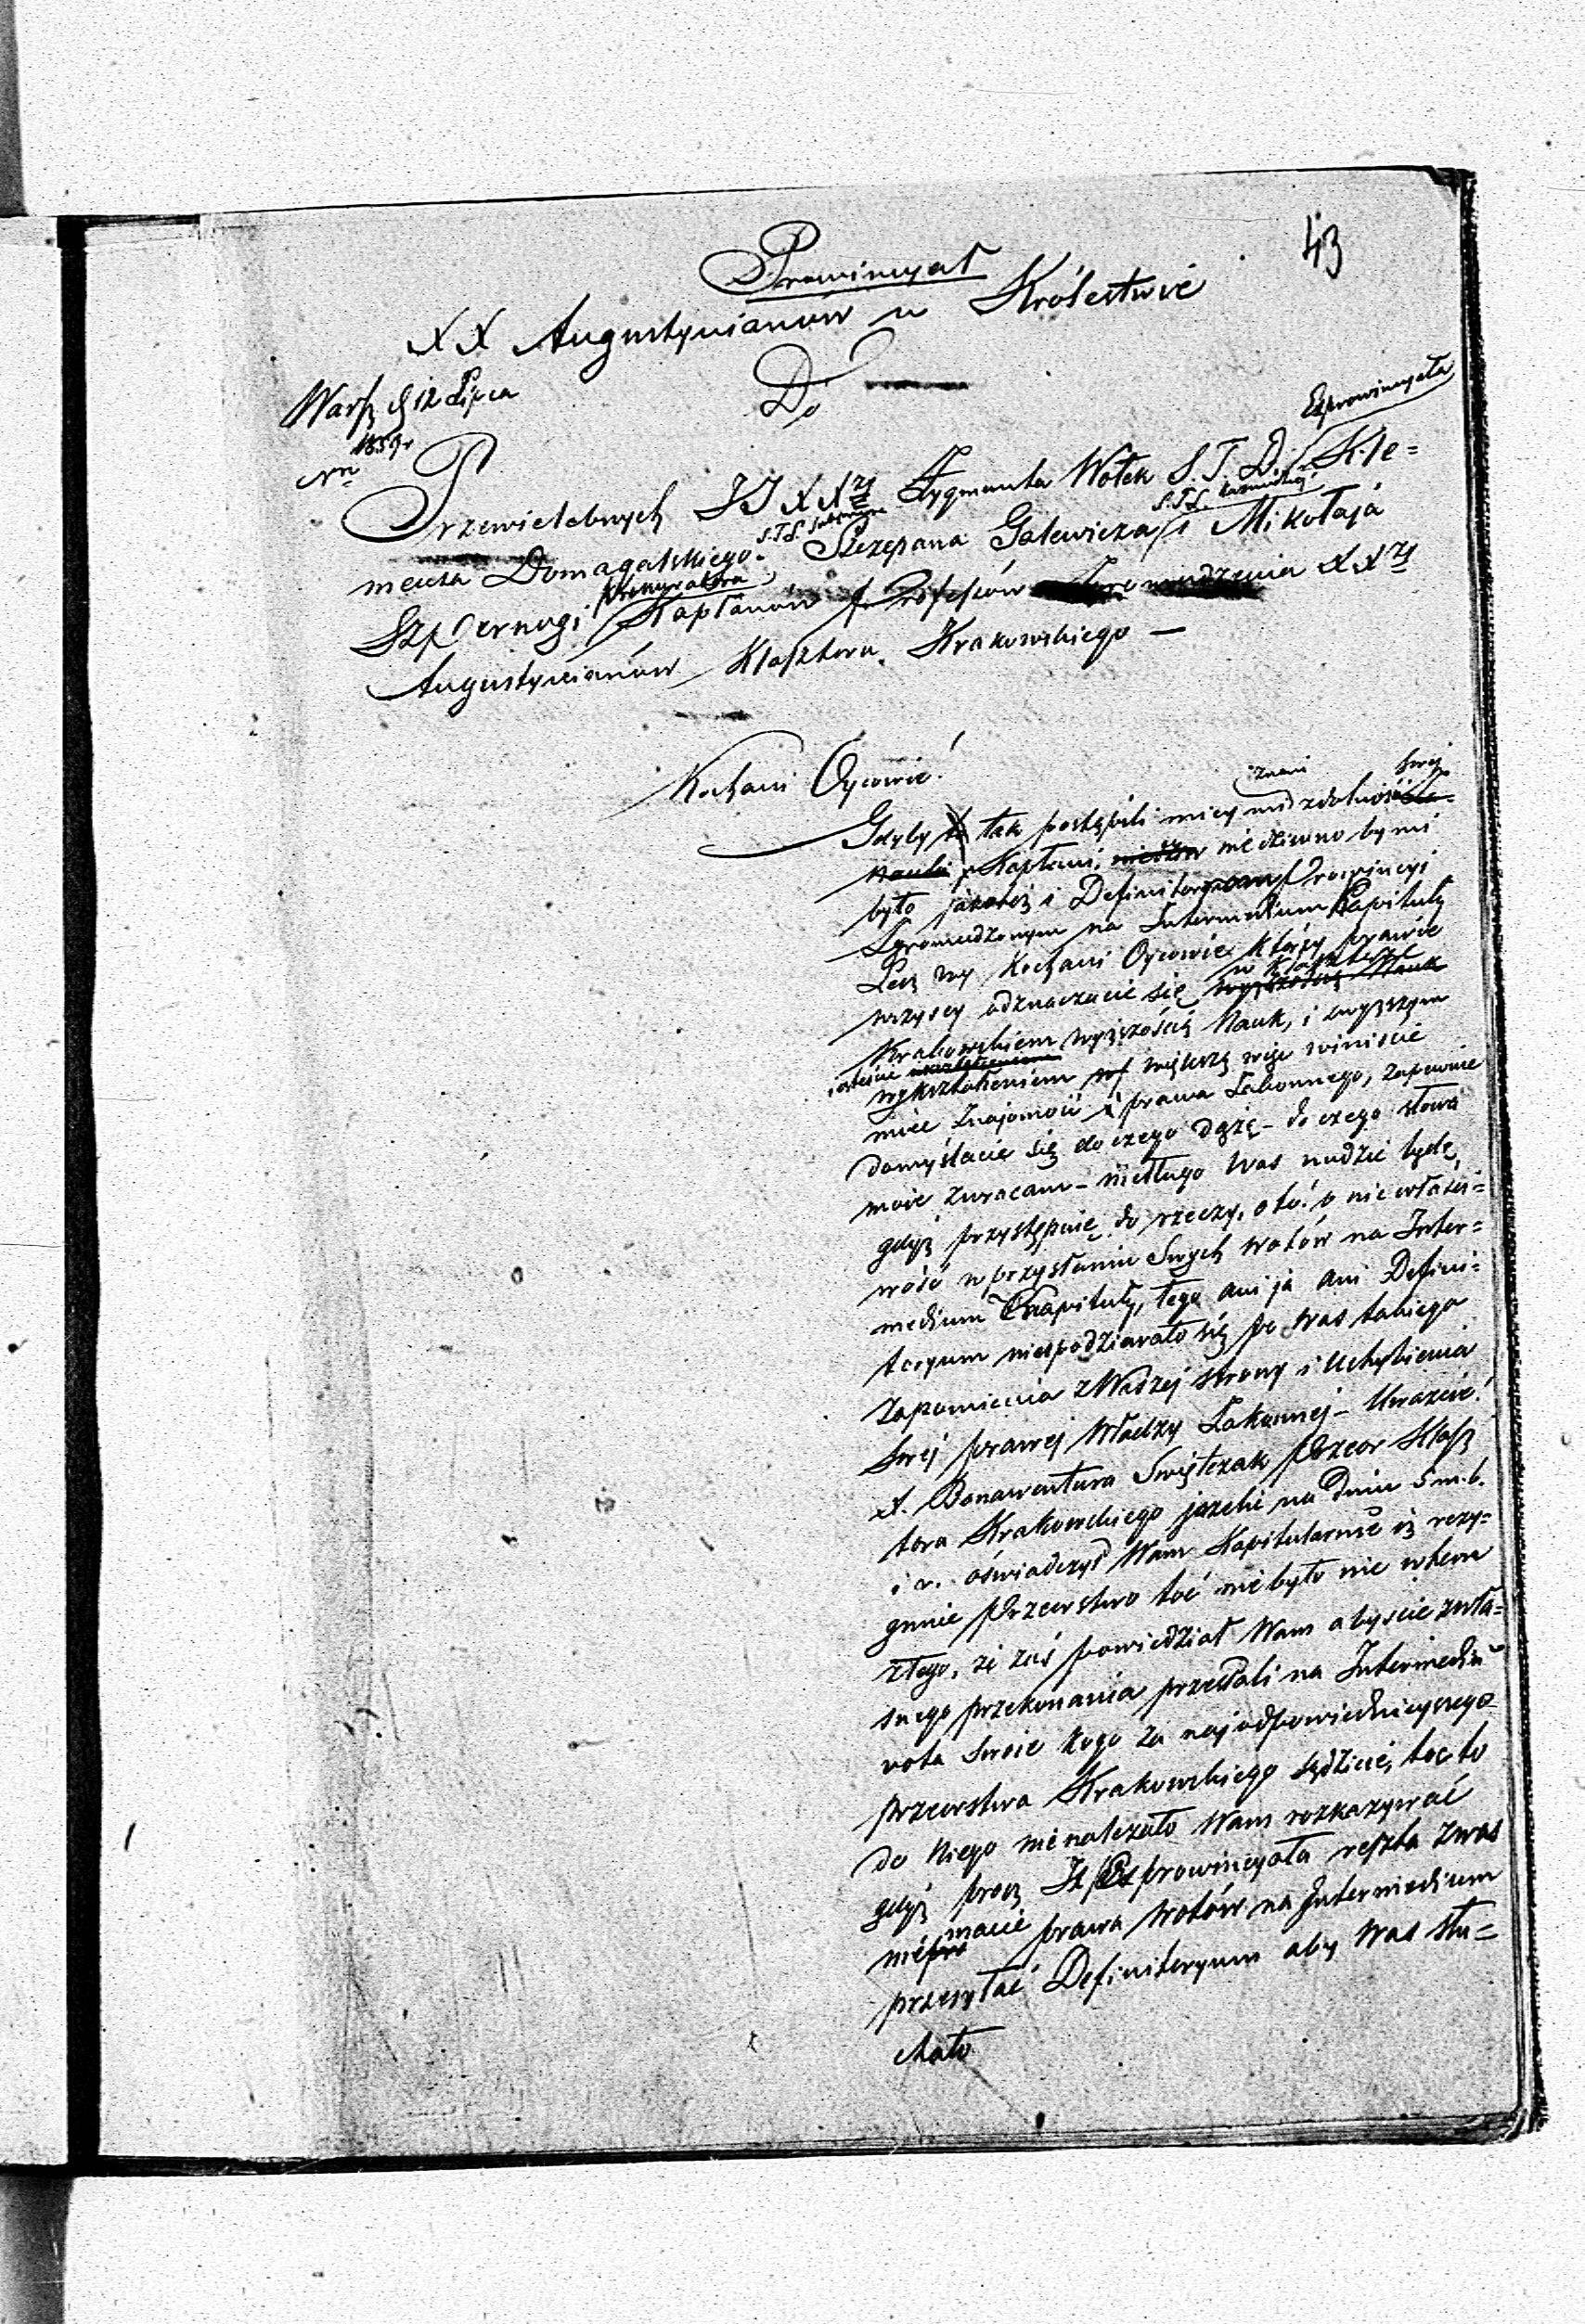 43
Prowincyał
XX Augustynianów w Królestwie
Warsz d 12 Lipca
1859 r
Nr
Do
Exprowincyała
Przewielebnych JJ XXży Zygmunta Wołek S. T. D. Kle=
S.T.L.
menta Domagalskiego S.T.L. Szczepana Galewicza i Mikołaja
Prokuratora
Szpernogi Kapłanów Professów Zgromadzenia XXży
Augustynianów Klasztoru Krakowskiego —
Kochani Oycowie!
znani swej
Gdyby tak postąpili mniey zdolności
nauki Kapłani, nie dziwno by mi
było jakoteż i Definitoryum Prowincyi
Zgromadzonym na Intermedium Kapituły
Lecz wy Kochani Oycowie którzy prawie
w Klasztorze
wszyscy odznaczacie się wyższością Nauk
Krakowskiem wyższością Nauk, i wyższym
jesteście
wykształceniem większą więc winiście
mieć znajomość prawa Zakonnego, zapewnie
domyślacie się do czego dążę – do czego słowa
moie zwracam – niedługo Was nudzić będę
gdyż przystępuię do rzeczy, oto! o niewłaści=
wość w przysłaniu Swych wotów na Inter=
medium Kapituły, tego ani ja ani Defini=
toryum niespodziewało się po Was takiego
zapomnienia z Waszej strony i Uchybienia
Swej prawej Władzy Zakonnej – Uważcie!
X. Bonawentura Swiętczak Przeor Klasz
tora Krakowskiego jeżeli na dniu 5 m. b.
i r. oświadczył Wam Kapitularnie iż rezy=
gnuie Przeorstwo toć nie było nic wtem
złego, że zaś powiedział Wam abyscie zwła=
snego przekonania przesłali na Intermediū
vota swoie kogo za najodpowiednieyszego
przeorstwa Krakowskiego sądzicie, toć to
do Niego nienależało Wam rozkazywać
gdyż procz Exprowincyała reszta zwas
nie macie prawa Wotów na Intermedium
przesyłać Definitoryum aby Was słu=
chało